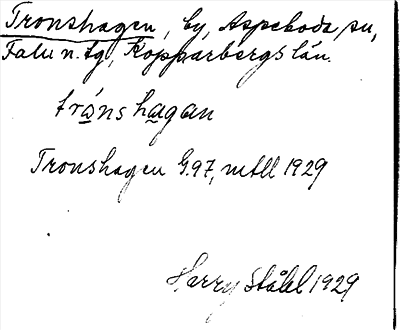 Tronshagen, by, Aspeboda sn,
Falu n. tg, Kopparbergs län.
trånshagan
Tronshagen G.97, mtll 1929
Harry Ståhl 1929